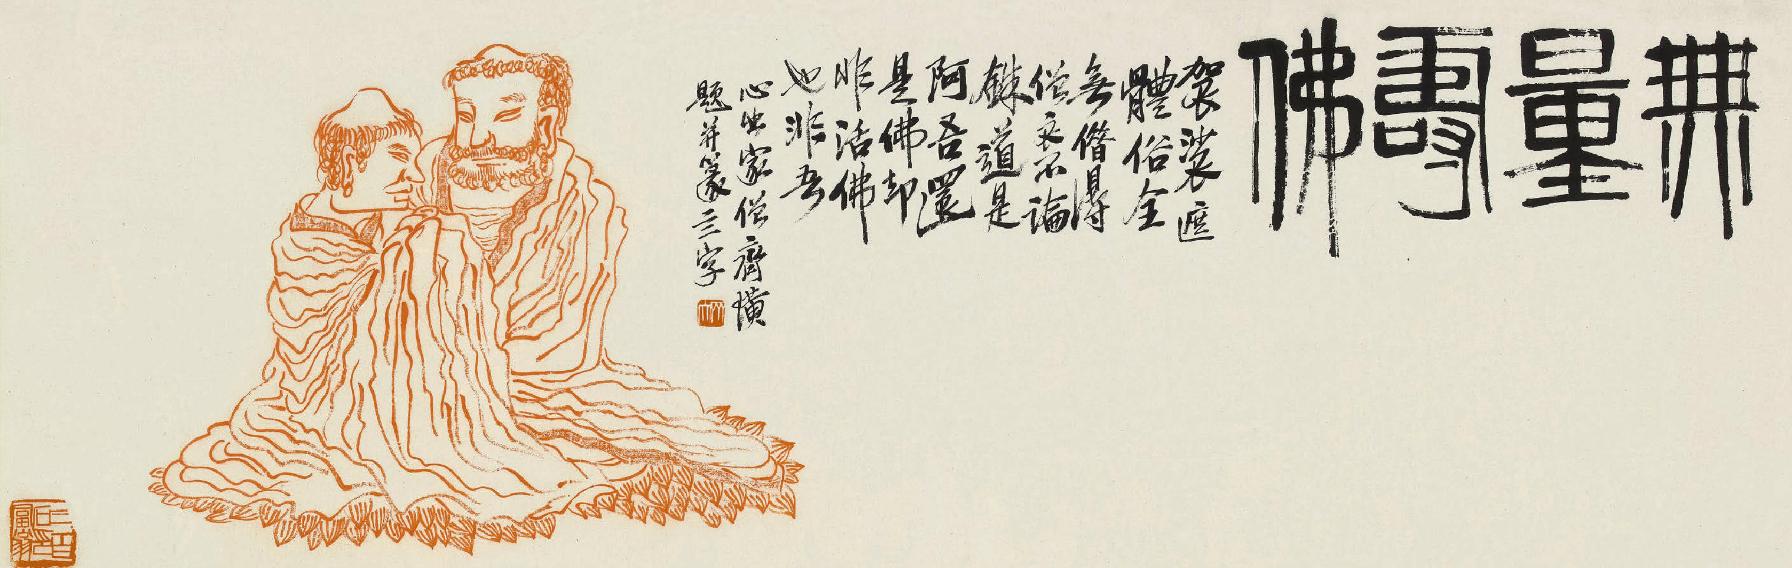 無量壽佛
袈裟遮
體俗全
無僭得
僧衣不論
銖道是
阿吾還
是佛却
非活佛
也非吾
心出家僧齊璜
題并篆三字
木人
三百石印富翁